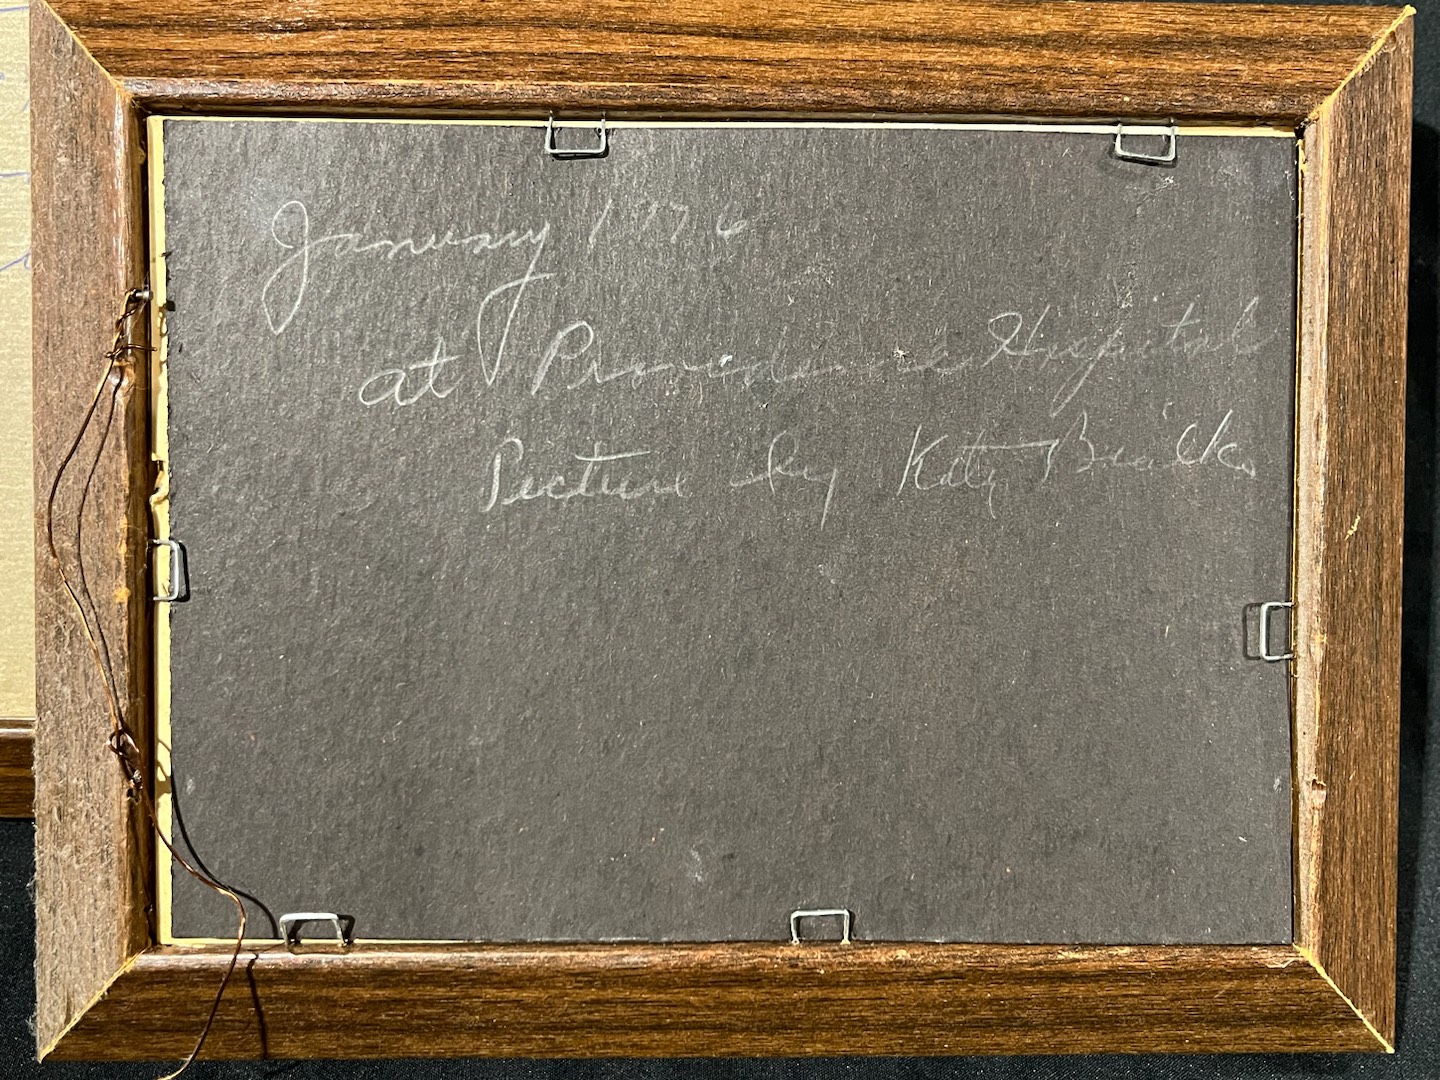 January 1976
at Providence Hospital
Picture by Katy